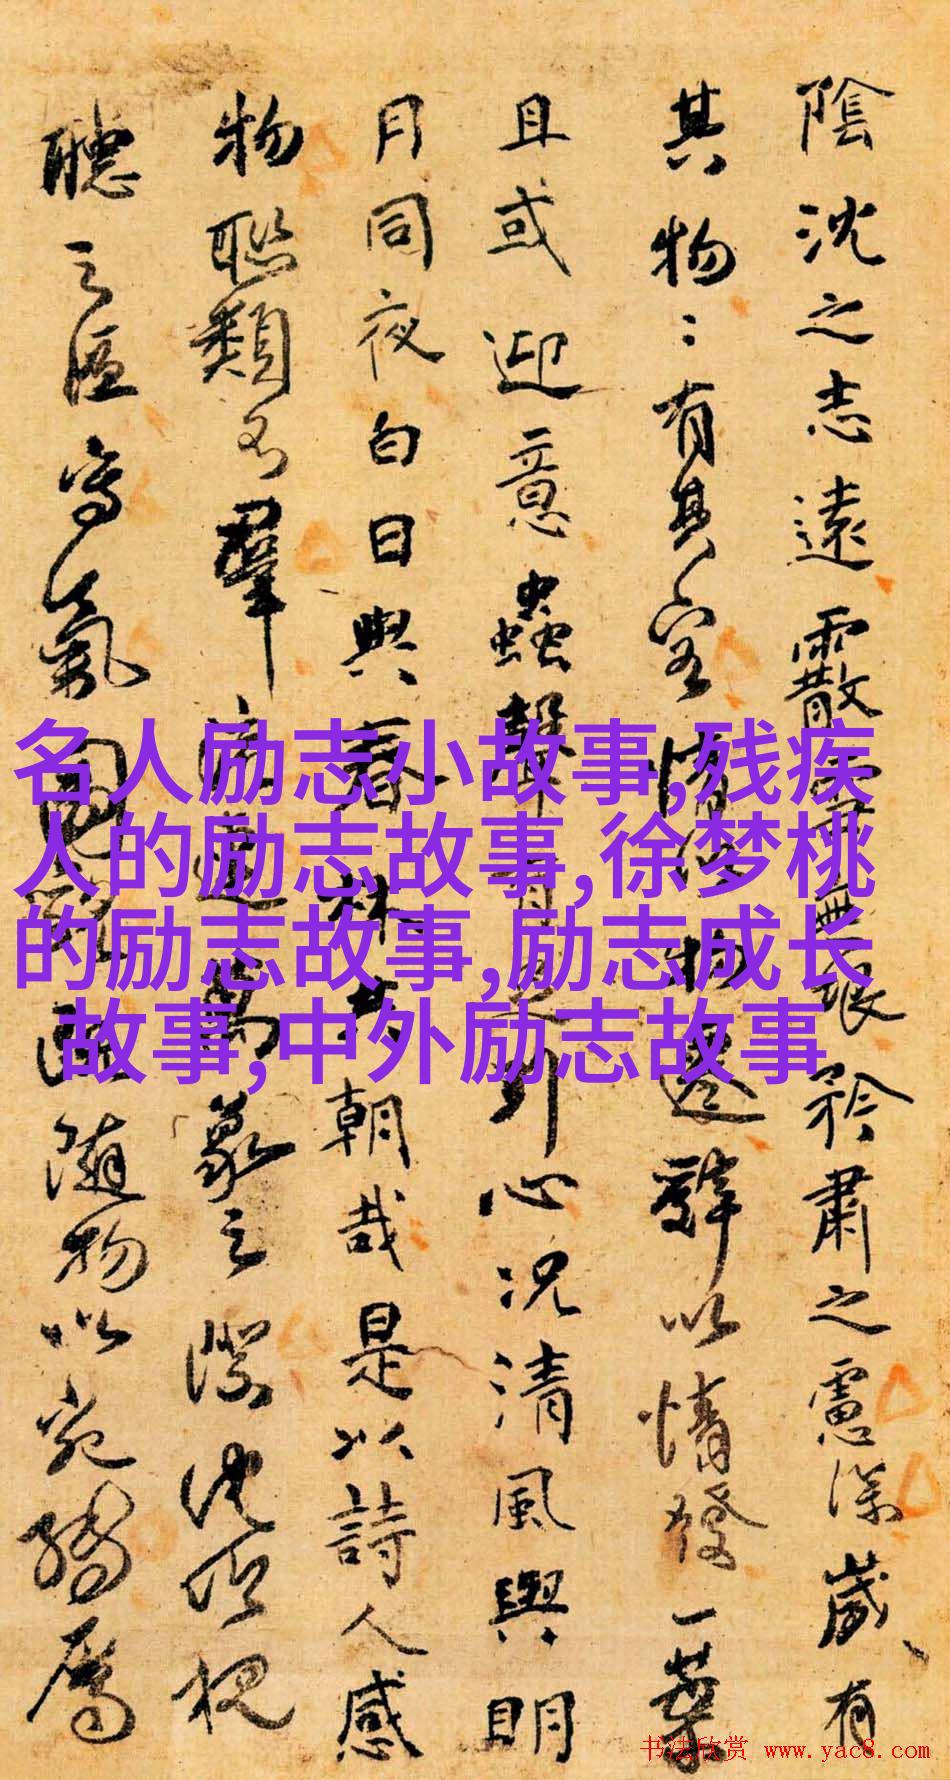 陰沈之志遠霰雪無垠矜肅之慮深歲有
其物二有其容情以物遷辭以情發一葉
且或迎意蟲聲有足引心況清風與明
月同夜白日與春林共朝哉是以詩人感
物聯類不羣流連萬象之際沈吟視
聽之區寫氣圖貌既隨物以宛轉屬
名人励志小故事,残疾
人的励志故事,徐梦桃
的励志故事,励志成长
故事,中外励志故事
书法欣赏 www.yac8.com